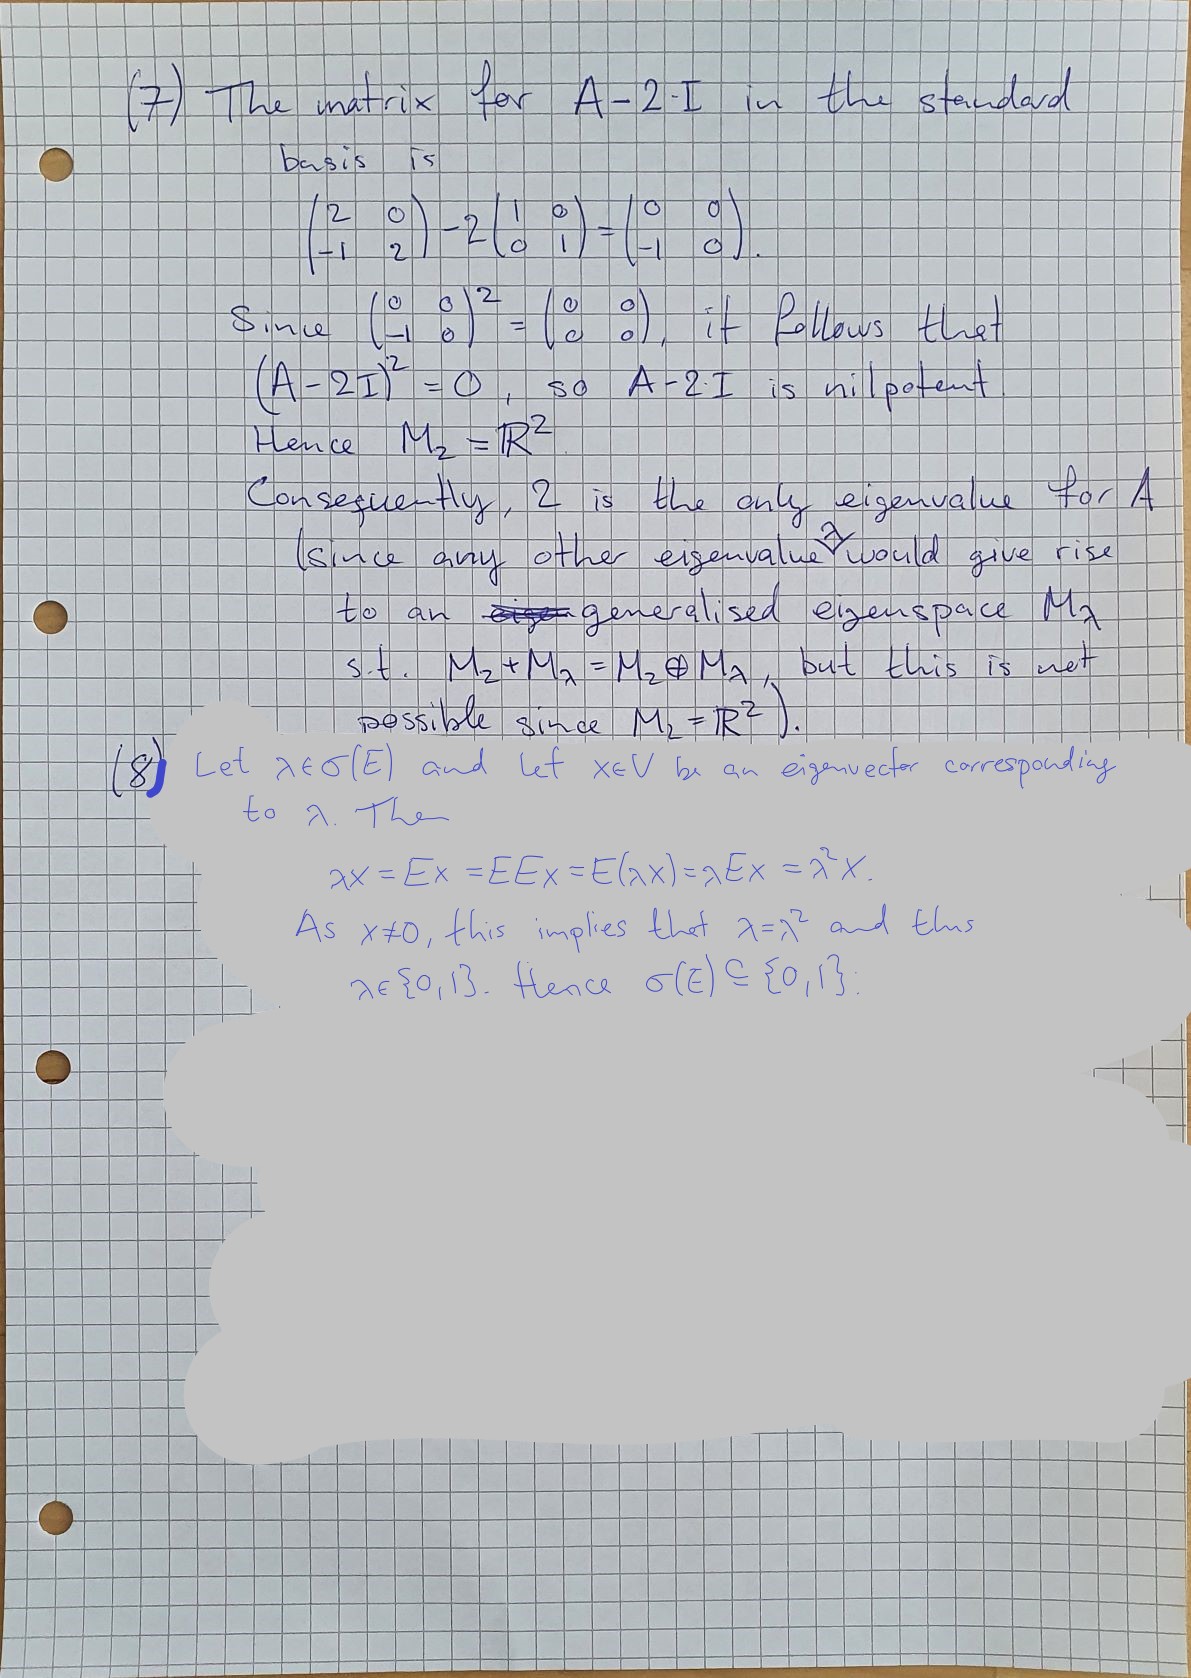 (7) The matrix for A-2·I in the standard
basis is
(2 0
-1 2) -2(1 0
0 1) = (0 0
-1 0).
Since (0 0
-1 0)² = (0 0
0 0), it follows that
(A-2I)² = 0, so A-2·I is nilpotent.
Hence M₂ = ℝ².
Consequently, 2 is the only eigenvalue for A
(since any other eigenvalue λ would give rise
to an generalised eigenspace M_λ
s.t. M₂+M_λ = M₂⊕M_λ, but this is not
possible since M₂ = ℝ²).
(8) Let λ∈σ(E) and let x∈V be an eigenvector corresponding
to λ. Then
λx = Ex = EEx = E(λx) = λEx = λ²x.
As x≠0, this implies that λ=λ² and thus
λ∈{0,1}. Hence σ(E)⊆{0,1}.